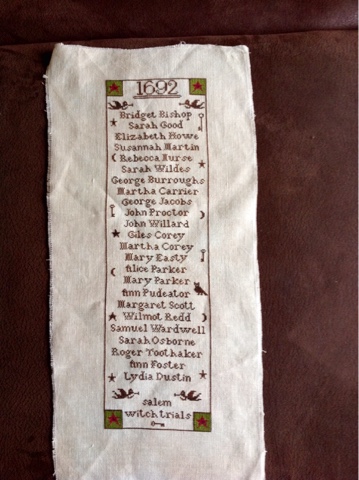 1692
Bridget Bishop
Sarah Good
Elizabeth Howe
Susannah Martin
Rebecca Nurse
Sarah Wildes
George Burroughs
Martha Carrier
George Jacobs
John Proctor
John Willard
Giles Corey
Martha Corey
Mary Easty
Alice Parker
Mary Parker
Ann Pudeator
Margaret Scott
Wilmot Redd
Samuel Wardwell
Sarah Osborne
Roger Toothaker
Ann Foster
Lydia Dustin
salem
witch trials